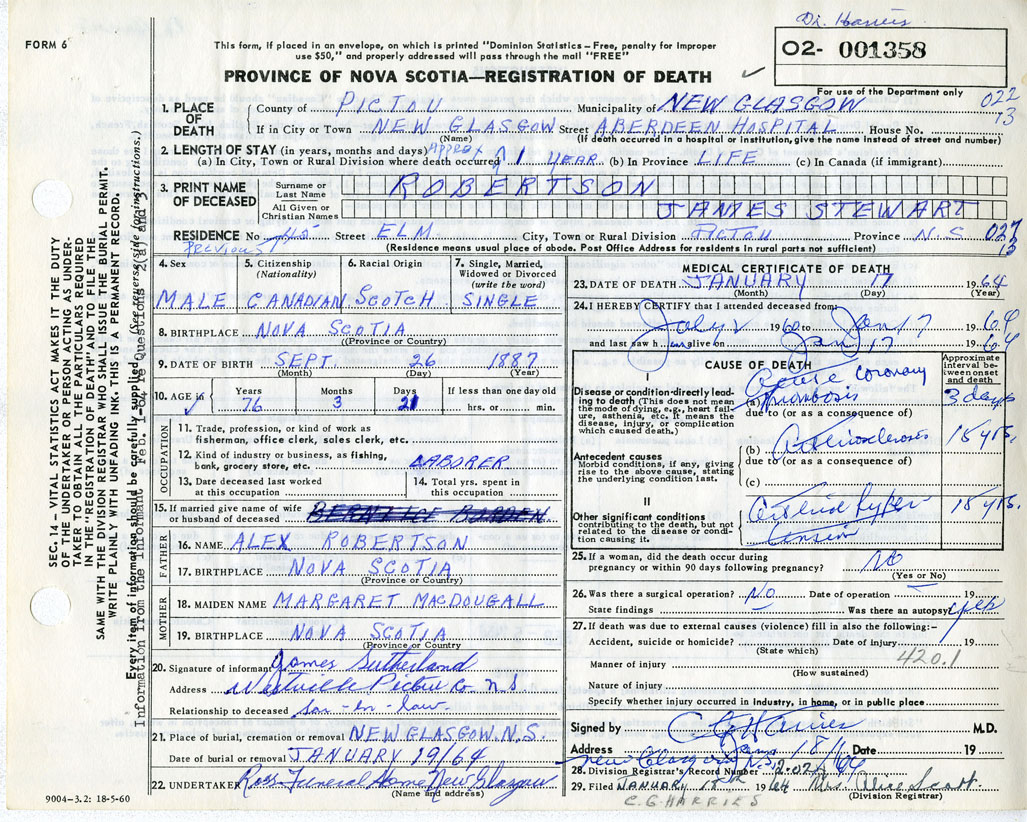 Dr. Harris
FORM 6
This form, if placed in an envelope, on which is printed "Dominion Statistics—Free, penalty for improper
use $50," and properly addressed will pass through the mail "FREE"
O2- 001358
PROVINCE OF NOVA SCOTIA—REGISTRATION OF DEATH
For use of the Department only
022
13
1. PLACE OF DEATH
County of PICTOU Municipality of NEW GLASGOW
If in City or Town NEW GLASGOW Street ABERDEEN HOSPITAL House No.
(Name) (If death occurred in a hospital or institution, give the name instead of street and number)
2. LENGTH OF STAY (in years, months and days)
(a) In City, Town or Rural Division where death occurred APPROX 1 YEAR (b) In Province LIFE (c) In Canada (if immigrant)
3. PRINT NAME OF DECEASED
Surname or Last Name ROBERTSON
All Given or Christian Names JAMES STEWART
RESIDENCE No 45 Street ELM City, Town or Rural Division PICTOU Province N.S 027
13
PREVIOUS (Residence means usual place of abode. Post Office Address for residents in rural parts not sufficient)
4. Sex MALE
5. Citizenship (Nationality) CANADIAN
6. Racial Origin SCOTCH
7. Single, Married, Widowed or Divorced (write the word) SINGLE
8. BIRTHPLACE NOVA SCOTIA
(Province or Country)
9. DATE OF BIRTH SEPT. 26 1887
(Month) (Day) (Year)
10. AGE in Years 76 Months 3 Days 21 If less than one day old hrs. or min.
OCCUPATION
11. Trade, profession, or kind of work as
fisherman, office clerk, sales clerk, etc.
12. Kind of industry or business, as fishing,
bank, grocery store, etc. LABORER
13. Date deceased last worked
at this occupation
14. Total yrs. spent in
this occupation
15. If married give name of wife
or husband of deceased
FATHER
16. NAME ALEX ROBERTSON
17. BIRTHPLACE NOVA SCOTIA
(Province or Country)
MOTHER
18. MAIDEN NAME MARGARET MACDOUGALL
19. BIRTHPLACE NOVA SCOTIA
(Province or Country)
20. Signature of informant James Sutherland
Address Westville Pictou Co N S
Relationship to deceased son-in-law
21. Place of burial, cremation or removal NEW GLASGOW. N.S
Date of burial or removal JANUARY 19/64
22. UNDERTAKER Ross Funeral Home New Glasgow
(Name and address)
9004—3.2: 18-5-60
MEDICAL CERTIFICATE OF DEATH
23. DATE OF DEATH JANUARY 17 1964
(Month) (Day) (Year)
24. I HEREBY CERTIFY that I attended deceased from
July 1960 to Jan 17 1964
and last saw h alive on Jan 17 1964
CAUSE OF DEATH
Approximate interval between onset and death
I
Disease or condition directly leading to death (This does not mean
the mode of dying, e.g., heart failure, asthenia, etc. It means the
disease, injury, or complication
which caused death.)
(a) Acute coronary thrombosis 3 days
due to (or as a consequence of)
Antecedent causes
Morbid conditions, if any, giving
rise to the above cause, stating
the underlying condition last.
(b) Arteriosclerosis 15 yrs.
due to (or as a consequence of)
(c)
II
Other significant conditions
contributing to the death, but not
related to the disease or condition causing it.
Arterial hypertension 15 yrs.
25. If a woman, did the death occur during
pregnancy or within 90 days following pregnancy? NO
(Yes or No)
26. Was there a surgical operation? No Date of operation 19
State findings Was there an autopsy
27. If death was due to external causes (violence) fill in also the following:—
Accident, suicide or homicide? Date of injury 19
(State which)
420.1
Manner of injury
(How sustained)
Nature of injury
Specify whether injury occurred in industry, in home, or in public place
Signed by C G Harries M.D.
Address New Glasgow N.S. Jan 18/64 Date 19
28. Division Registrar's Record Number
29. Filed JANUARY 18th 1964 Mrs. Alice Scott
(Division Registrar)
C. G. HARRIES
SEC. 14 - VITAL STATISTICS ACT MAKES IT THE DUTY
OF THE UNDERTAKER OR PERSON ACTING AS UNDERTAKER TO OBTAIN ALL THE PARTICULARS REQUIRED
IN THE "REGISTRATION OF DEATH" AND TO FILE THE
SAME WITH THE DIVISION REGISTRAR WHO SHALL ISSUE THE BURIAL PERMIT.
WRITE PLAINLY WITH UNFADING INK. THIS IS A PERMANENT RECORD.
Every item of information should be carefully supplied (See reverse side for instructions.)
Information from the Informant Feb. 1-64 re Questions 2(a) and 3